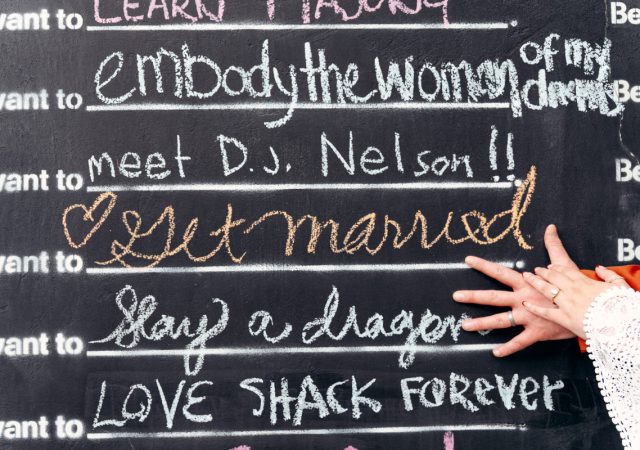 vant to LEARN MAJONG.
vant to embody the woman of my dreams
vant to meet D.J. Nelson!!
vant to ♡ Get married
vant to Slay a dragon
vant to LOVE SHACK FOREVER
Be
Be
Be
Be